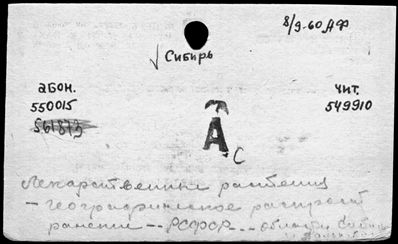 8/9-60 ДФ
√ Сибирь
абон.
550015
561873
чит.
549910
А с
Лекарственные растения
- географическое распрост
ранение -- РСФСР -- области Сибири